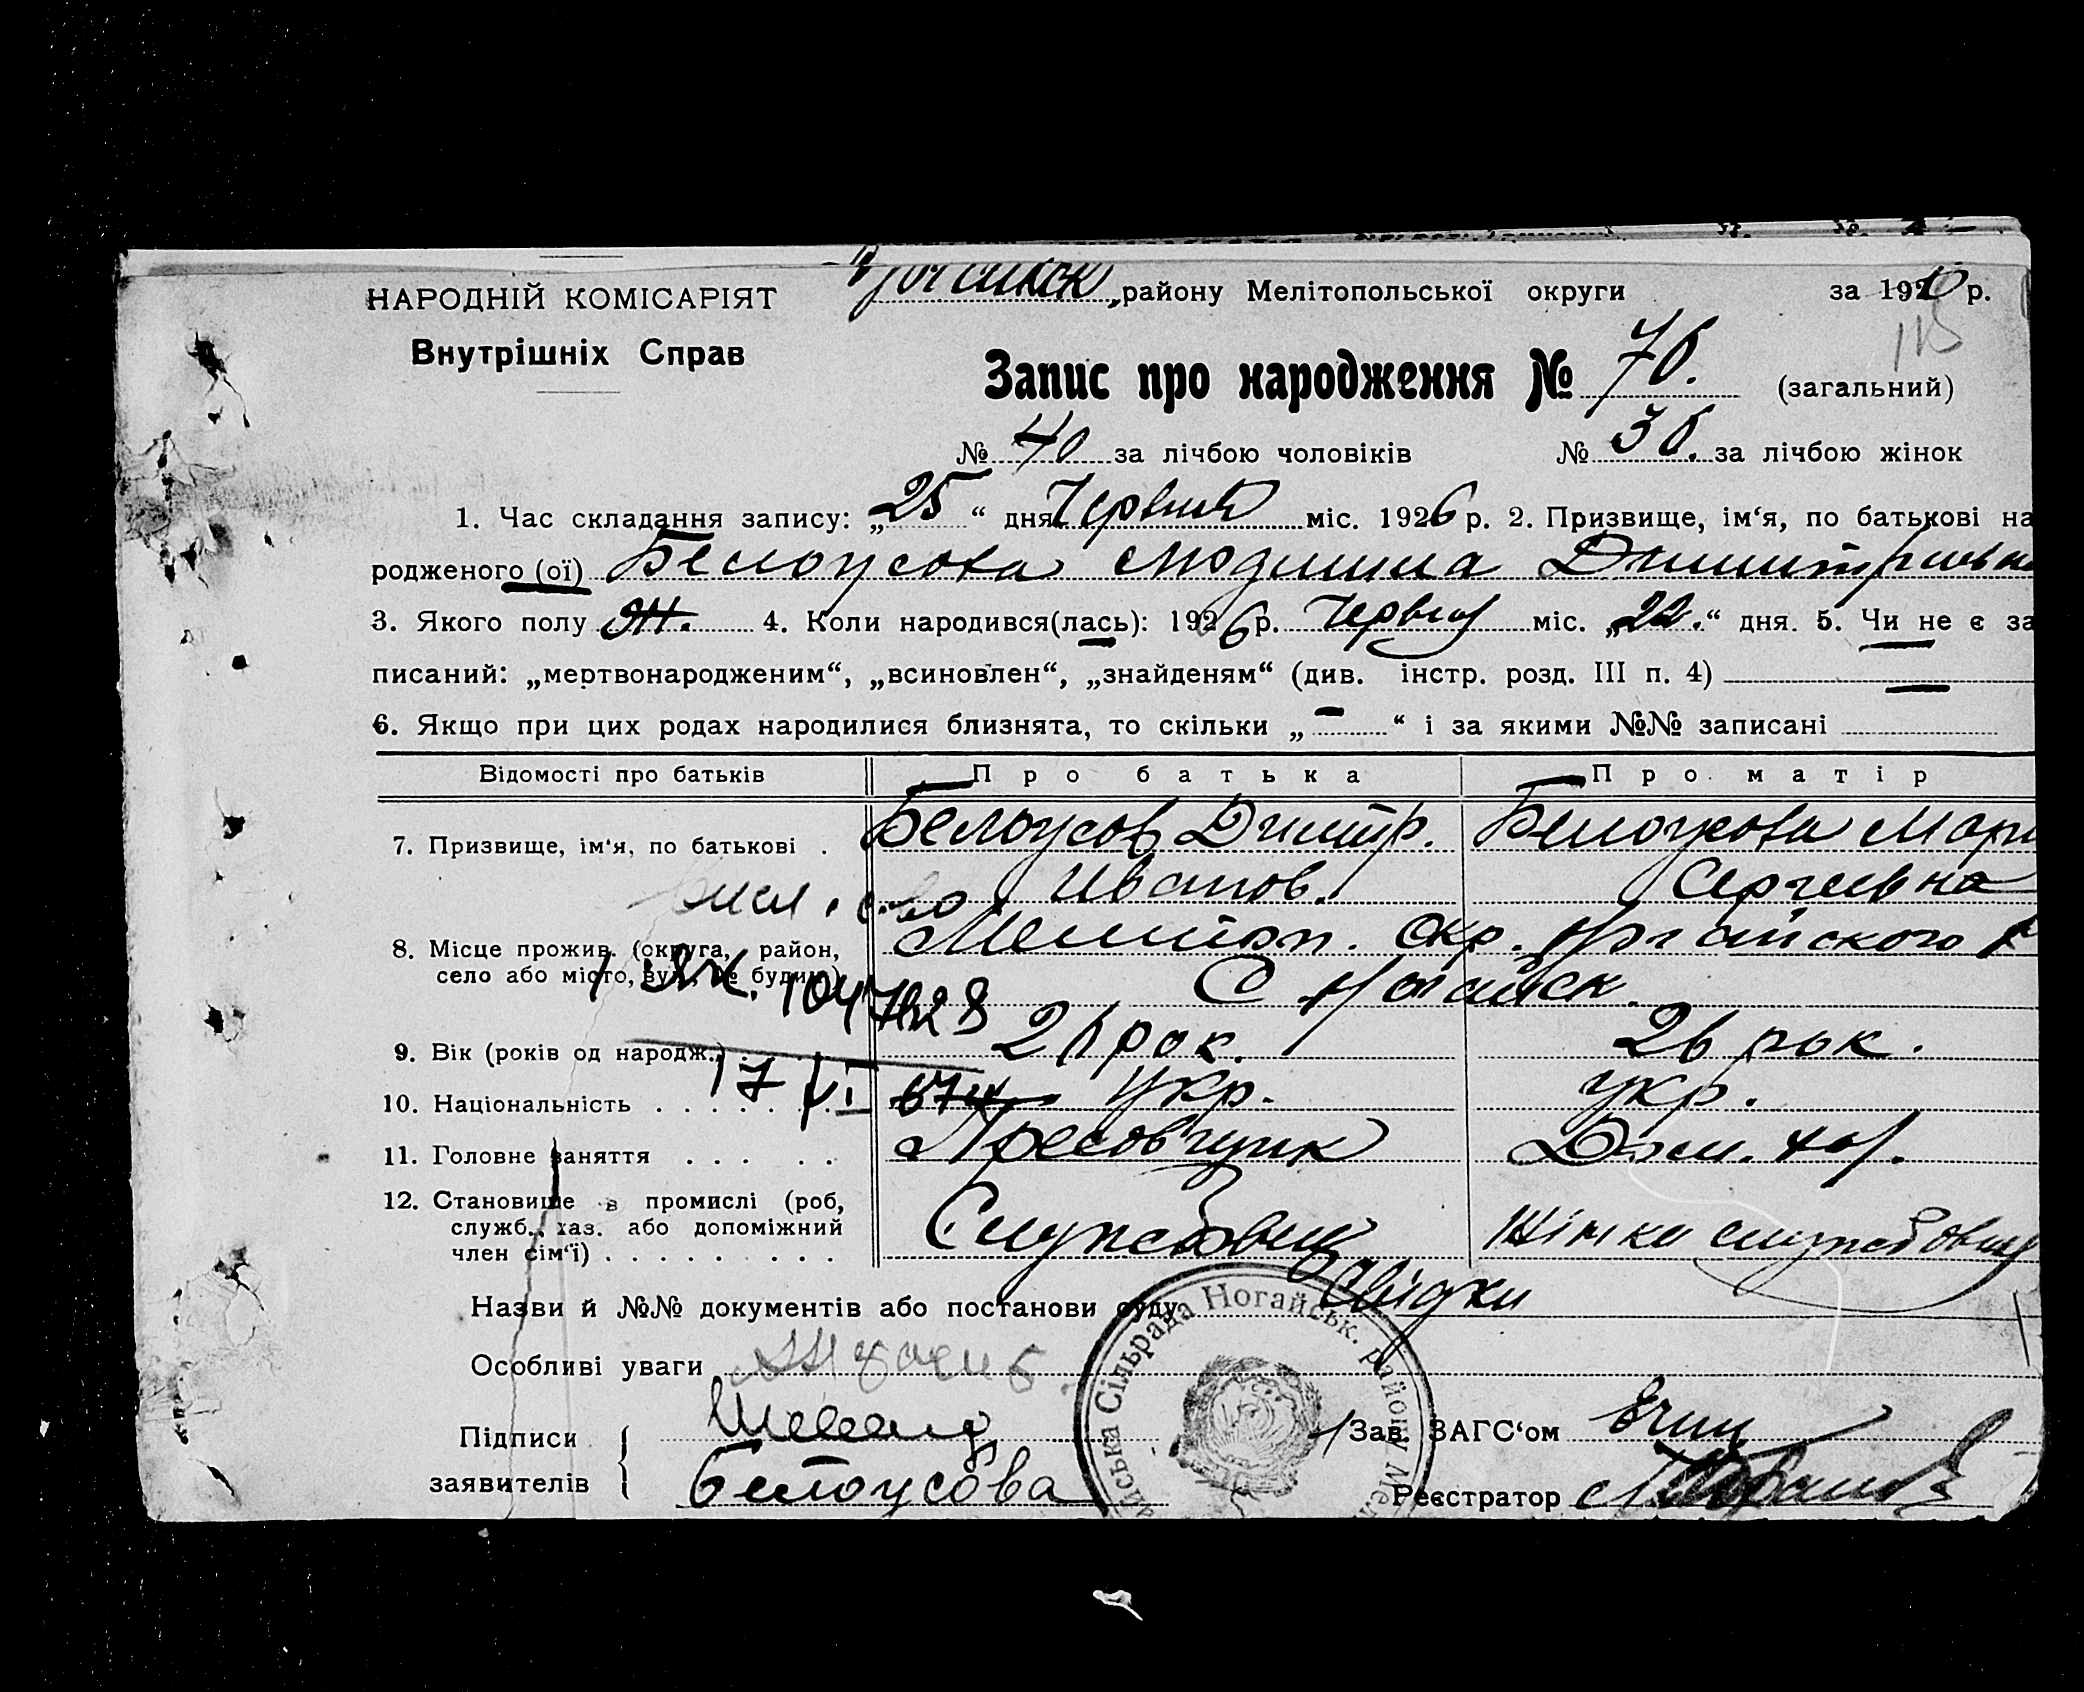 НАРОДНІЙ КОМІСАРІЯТ
Внутрішніх Справ
району Мелітопольської округи за 1926 р.
Запис про народження № 76. (загальний)
№ 40 за лічбою чоловіків № 36. за лічбою жінок
1. Час складання запису: „25“ дня Червня міс. 1926 р. 2. Призвище, ім‘я, по батькові на
родженого (ої) Белоусова Людмила Димитриевна
3. Якого полу Ж. 4. Коли народився(лась): 1926 р. Червня міс. „22.“ дня. 5. Чи не є за
писаний: „мертвонародженим“, „всиновлен“, „знайденям“ (див. інстр. розд. III п. 4) —
6. Якщо при цих родах народилися близнята, то скільки „—“ і за якими №№ записані
Відомості про батьків Про батька Про матір
7. Призвище, ім‘я, по батькові . Белоусов Дмитр. Белоусова Мари
Иванов. Сергеевна
8. Місце прожив. (округа, район, Мелитоп. Окр. Ногайского р
село або місто, вул., № будин.) С Ногайск.
1 ЯЖ. 1047828
9. Вік (років од народж.) 26 рок. 26 рок.
17/VI 67
10. Національність . . . . . . . . укр. укр.
11. Головне заняття . . . . . Пресовщик Дом. хоз.
12. Становище в промислі (роб, Службовец Жінка службовця
служб., хаз. або допоміжний
член сім‘ї) . . . . . . . . .
Назви й №№ документів або постанови суду Свідки
Особливі уваги
Підписи
заявителів Белоусова
Зав. ЗАГС‘ом
Реєстратор
Сільрада Ногайськ. району Мел